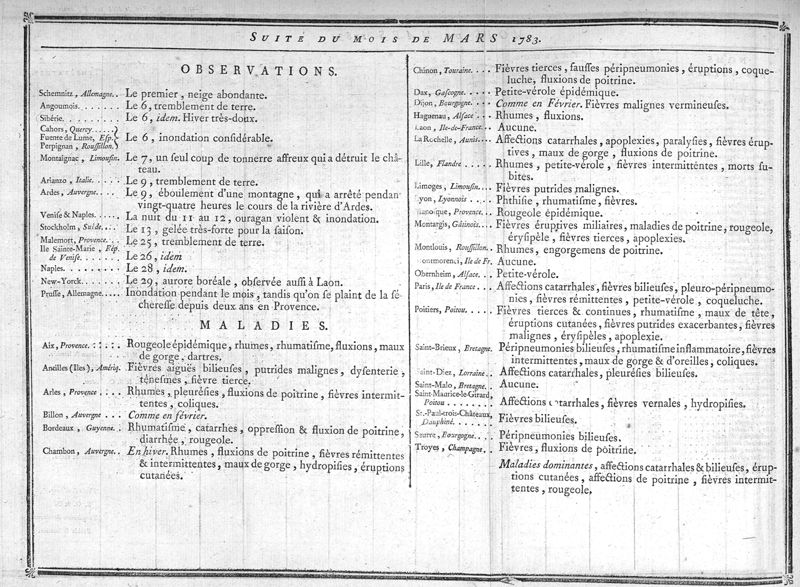 SUITE DU MOIS DE MARS 1783.
OBSERVATIONS.
Schemnitz, Allemagne.. Le premier, neige abondante.
Angoumois....... Le 6, tremblement de terre.
Sibérie......... Le 6, idem. Hiver très-doux.
Cahors, Quercy....
Fuente de Lume, Esp. Le 6, inondation considérable.
Perpignan, Roussillon.
Montaignac, Limousin. Le 7, un seul coup de tonnerre affreux qui a détruit le châ-
teau.
Arianzo, Italie..... Le 9, tremblement de terre.
Ardes, Auvergne.... Le 9, éboulement d'une montagne, qui a arrêté pendan
vingt-quatre heures le cours de la rivière d'Ardes.
Venise & Naples..... La nuit du 11 au 12, ouragan violent & inondation.
Stockholm, Suède.... Le 13, gelée très-forte pour la saison.
Malemort, Provence... Le 25, tremblement de terre.
Ile Sainte-Marie, Eép.
de Venise..... Le 26, idem
Naples......... Le 28, idem.
New-Yorck....... Le 29, aurore boréale, observée aussi à Laon.
Prusse, Allemagne..... Inondation pendant le mois, tandis qu'on se plaint de la sé-
cheresse depuis deux ans en Provence.
MALADIES.
Aix, Provence. Rougeole épidémique, rhumes, rhumatisme, fluxions, maux
de gorge, dartres.
Antilles (Iles), Amériq. Fièvres aiguës bilieuses, putrides malignes, dysenterie,
ténesmes, fièvre tierce.
Arles, Provence.... Rhumes, pleurésies, fluxions de poitrine, fièvres intermit-
tentes, coliques.
Billon, Auvergne... Comme en février.
Bordeaux, Guyenne.. Rhumatisme, catarrhes, oppression & fluxion de poitrine,
diarrhée, rougeole.
Chambon, Auvergne.. En hiver. Rhumes, fluxions de poitrine, fièvres rémittentes
& intermittentes, maux de gorge, hydropisies, éruptions
cutanées.
Chinon, Touraine.... Fièvres tierces, fausses péripneumonies, éruptions, coque-
luche, fluxions de poitrine.
Dax, Gascogne..... Petite-vérole épidémique.
Dijon, Bourgogne... Comme en Février. Fièvres malignes vermineuses.
Haguenau, Alsace... Rhumes, fluxions.
Laon, Ile-de-France.. Aucune.
La Rochelle, Aunis... Affections catarrhales, apoplexies, paralysies, fièvres érup-
tives, maux de gorge, fluxions de poitrine.
Lille, Flandre..... Rhumes, petite-vérole, fièvres intermittentes, morts su-
bites.
Limoges, Limousin... Fièvres putrides malignes.
yon, Lyonnois.... Phthisie, rhumatisme, fièvres.
anosque, Provence... Rougeole épidémique.
Montargis, Gâtinois... Fièvres éruptives miliaires, maladies de poitrine, rougeole,
érysipèle, fièvres tierces, apoplexies.
Montlouis, Roussillon. Rhumes, engorgemens de poitrine.
ontmorenci, Ile de Fr. Aucune.
Obernheim, Alsace.. Petite-vérole.
Paris, Ile de France... Affections catarrhales, fièvres bilieuses, pleuro-péripneumo-
nies, fièvres rémittentes, petite-vérole, coqueluche.
Poitiers, Poitou..... Fièvres tierces & continues, rhumatisme, maux de tête,
éruptions cutanées, fièvres putrides exacerbantes, fièvres
malignes, érysipèles, apoplexie.
Saint-Brieux, Bretagne. Péripneumonies bilieuses, rhumatisme inflammatoire, fièvres
intermittentes, maux de gorge & d'oreilles, coliques.
Saint-Diez, Lorraine.. Affections catarrhales, pleurésies bilieuses.
Saint-Malo, Bretagne.. Aucune.
Saint-Maurice-le-Girard,
Poitou........ Affections catarrhales, fièvres vernales, hydropisies.
St.-Paul-trois-Châteaux,
Dauphiné....... Fièvres bilieuses.
Seurre, Bourgogne... Péripneumonies bilieuses.
Troyes, Champagne... Fièvres, fluxions de poitrine.
Maladies dominantes, affections catarrhales & bilieuses, érup-
tions cutanées, affections de poitrine, fièvres intermit-
tentes, rougeole.